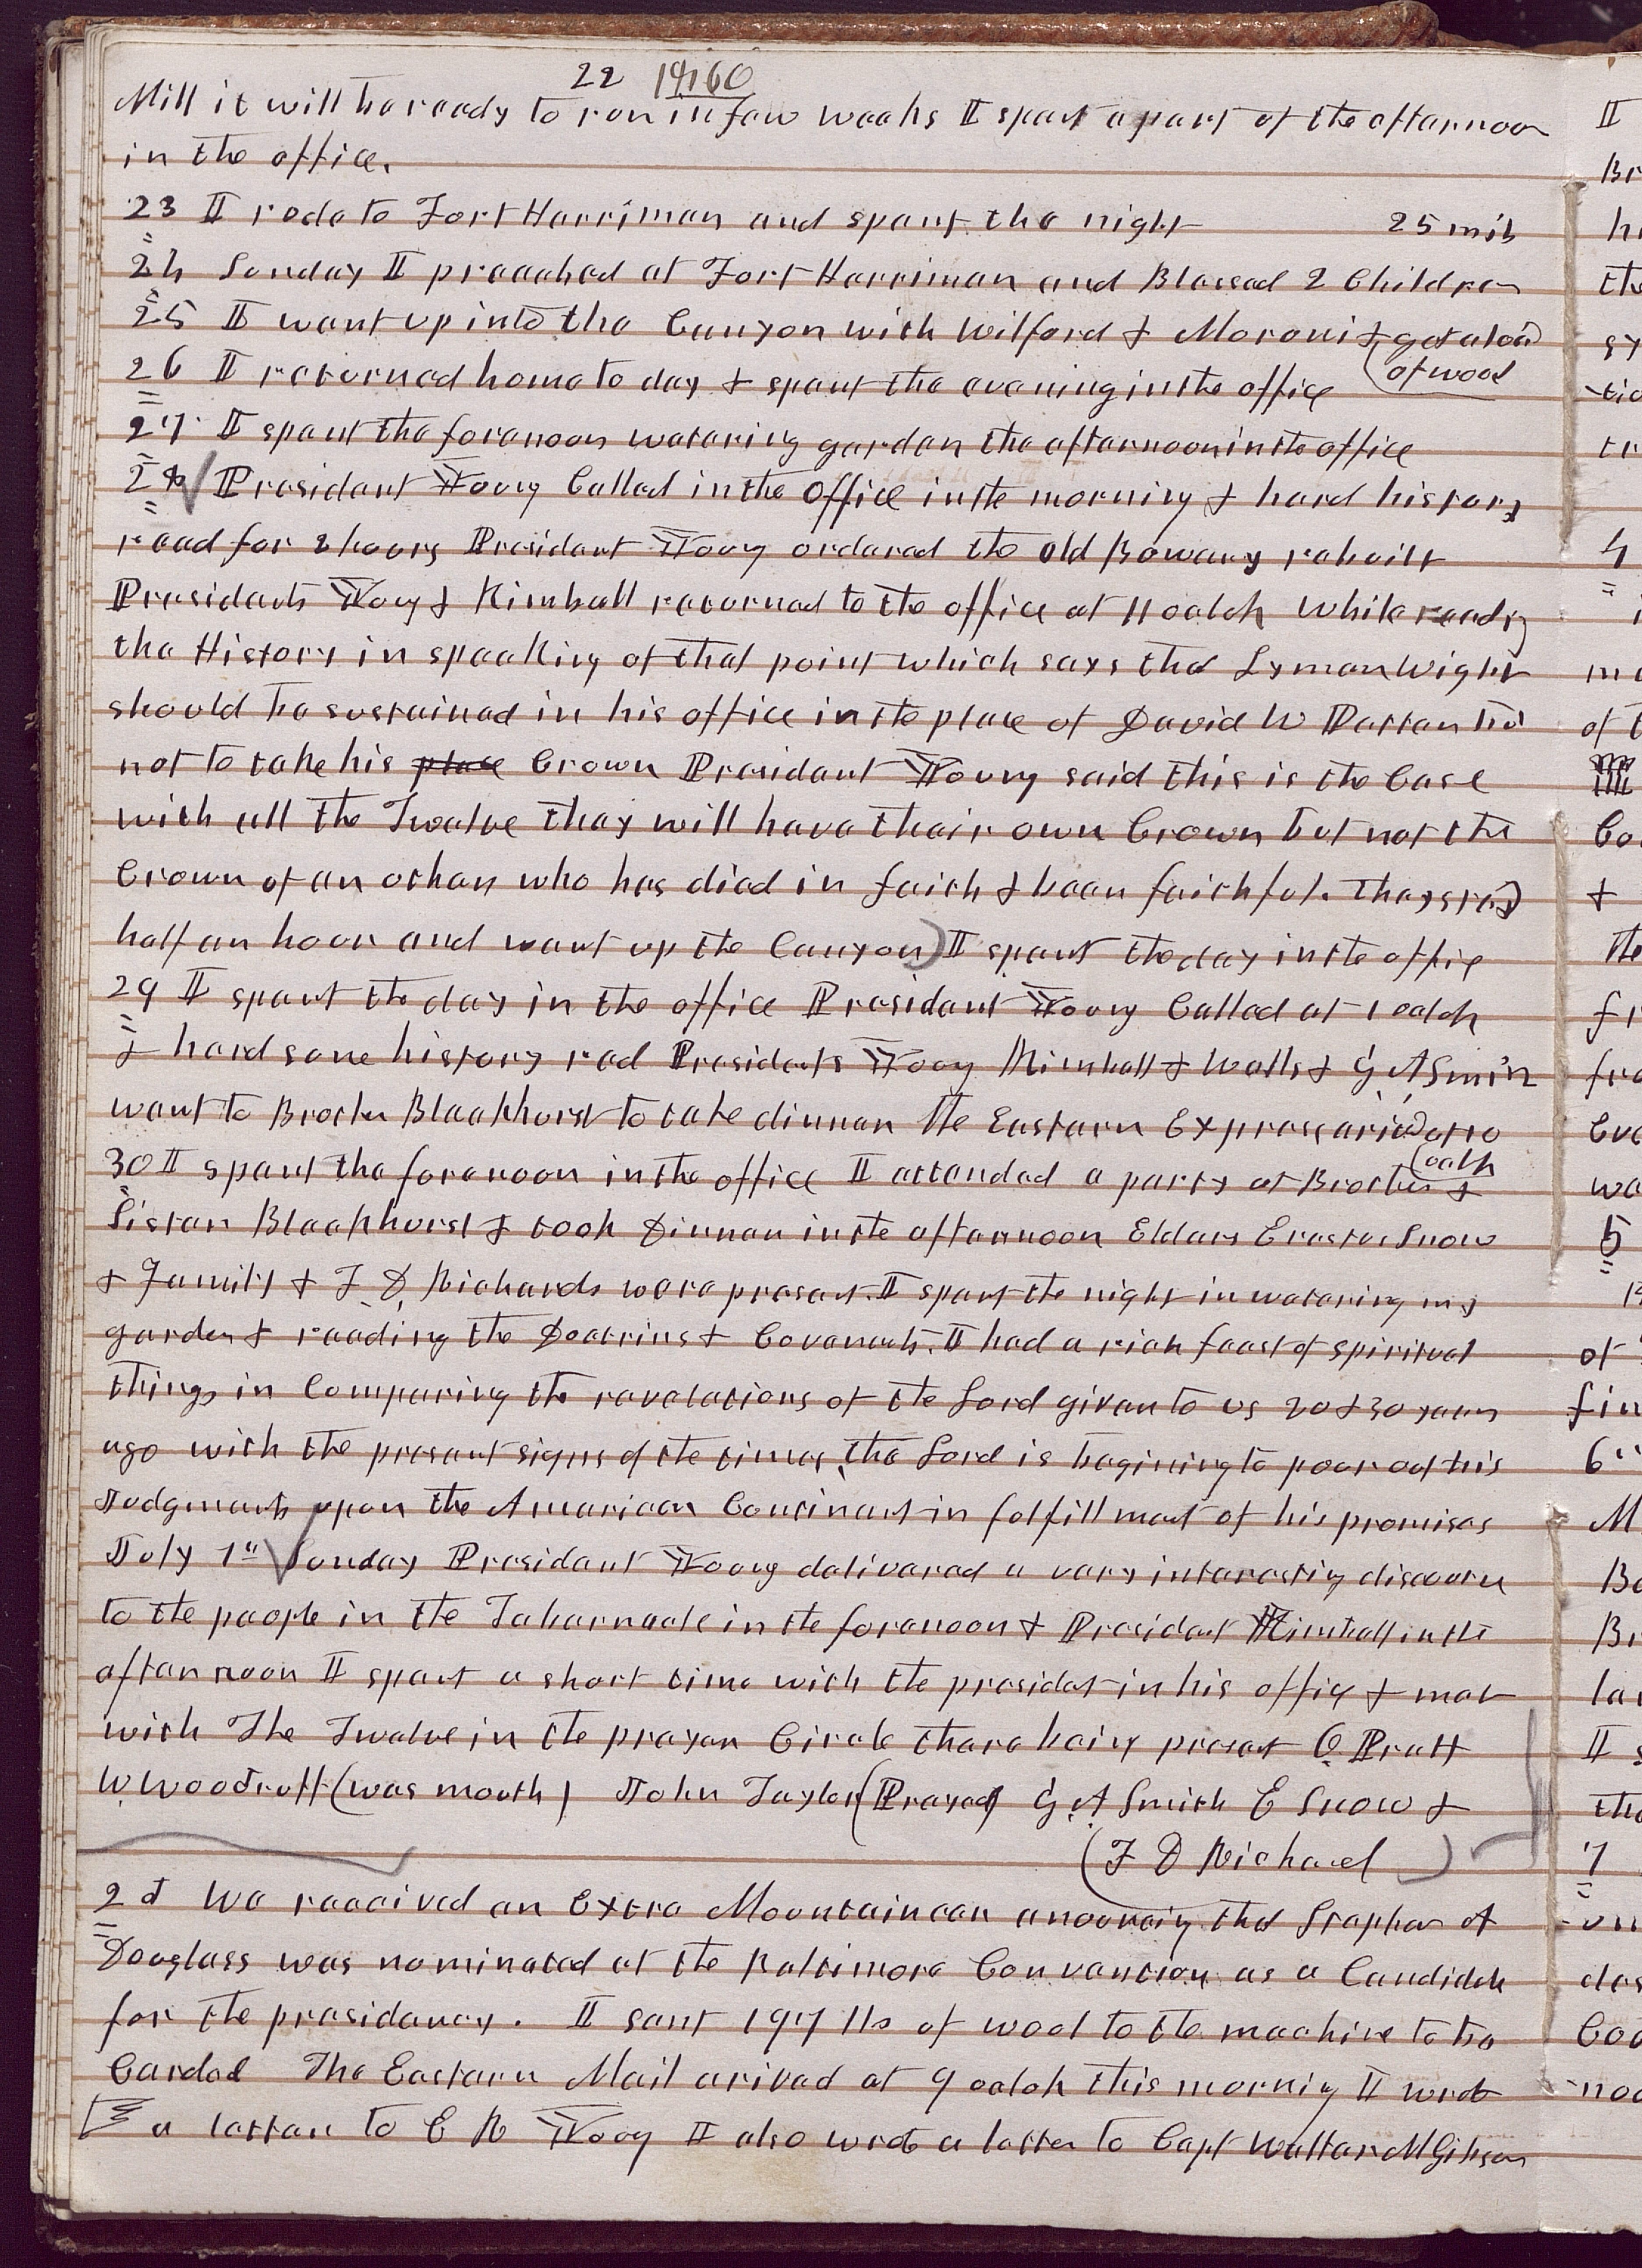 22 1860
Mill it will be ready to run in few weeks I spent a part of the afternoon
in the office.
23 I rode to Fort Harriman and spent the night 25 mils
24 Sunday I preached at Fort Harriman and Blessed 2 Children
25 I went up into the Canyon with Wilford & Moroni & got a load
(of wood
26 I returned home to day & spent the evening in the office
27 I spent the forenoon watering garden the afternoon in the office
28 President Young Called in the office in the morning & herd history
read for 2 hours President Young ordered the old Bowery rebuilt
Presidents Young & Kimball returned to the office at 11 oclok While readig
the History in speaking of that point which says that Lyman Wight
should be sustained in his office in the place of David W Patten but
not to take his place Crown President Young said this is the Case
with all the Twelve they will have their own Crown but not the
Crown of an other who has died in faith & been faithful. They staid
half an hour and went up the Canyon) I spent the day in the office
29 I spent the day in the office President Young Called at 1 oclok
& herd some history red Presidents Young Kimball & Wells & G. A. Smith
went to Brother Blackhurst to take dinner The Eastern Express arived at 10
(oclk
30 I spent the forenoon in the office I attended a party at Brother &
Sister Blackhurst & took Dinner in the afternoon Elders Erastus Snow
& Family & F. D. Richards were present. I spent the night in watering my
garden & reading the Doctrins & Covenants. I had a rich feast of spiritual
things in Comparing the revelations of the Lord given to us 20 & 30 years
ago with the present signs of the times, the Lord is begining to poor out his
Judgments upon the American Continent in fulfillment of his promises
July 1st Sunday President Young delivered a very interestig discours
to the people in the Tabernacle in the forenoon & President Kimball in the
afternoon I spent a short time with the presidet in his office & met
with The Twelve in the prayer Circle there being present O. Pratt
W. Woodruff (was mouth) John Taylor (Prayed) G. A. Smith E Snow &
(F D Richard )
2d We received an Extra Mountaineer anouncig that Stephen A
Douglass was nominated at the Baltimore Convention as a Candidate
for the presidency. I sent 197 lbs of wool to the machine to be
Carded The Eastern Mail arived at 9 oclok this mornig I wrote
a letter to B H Young I also wrote a letter to Capt Walter M Gibson